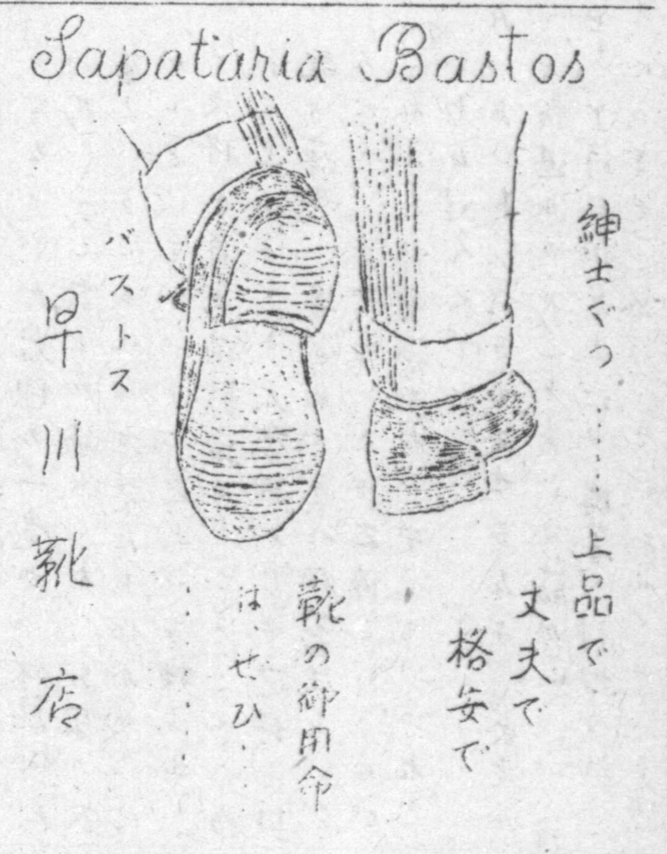 Sapataria Bastos
紳士ぐつ……上品で
丈夫で
格安で
靴の御用命
は、ぜひ…
……
バストス
早川靴店